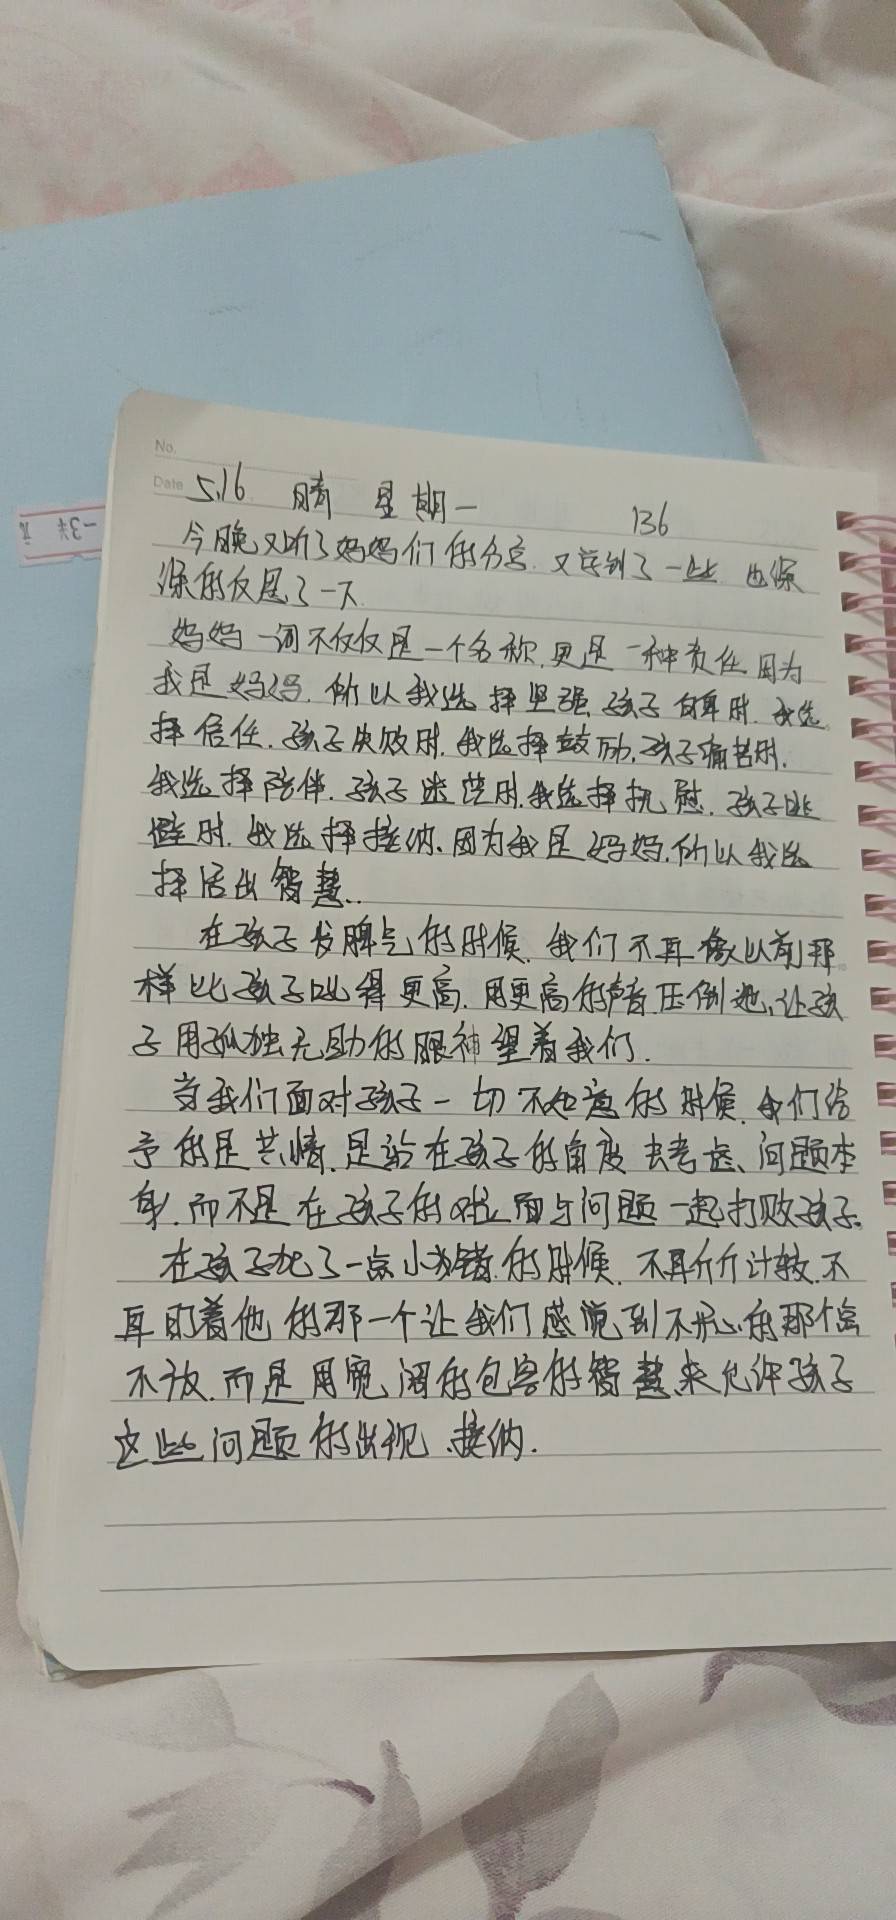 No.
Date 5.16 晴 星期一 136
今晚又听了妈妈们的分享.又学到了一些 也深
深的反思了一下.
妈妈一词不仅仅是一个名称,更是一种责任.因为
我是妈妈.所以我选择坚强.孩子自卑时.我选
择信任.孩子失败时.我选择鼓励.孩子痛苦时.
我选择陪伴.孩子迷茫时.我选择抚慰.孩子逃
避时.我选择接纳.因为我是妈妈.所以我选
择活出智慧..
在孩子发脾气的时候.我们不再像以前那
样比孩子吼得更高.用更高的声音压倒他,让孩
子用孤独无助的眼神望着我们.
当我们面对孩子一切不如意的时候.我们给
予的是共情.是站在孩子的角度去考虑、问题本
身.而不是在孩子的对立面与问题一起打败孩子。
在孩子犯了一点小错的时候.不再斤斤计较.不
再盯着他的那一个让我们感觉到不开心的那个点
不放.而是用宽阔的包容的智慧来允许孩子
这些问题的出现、接纳.